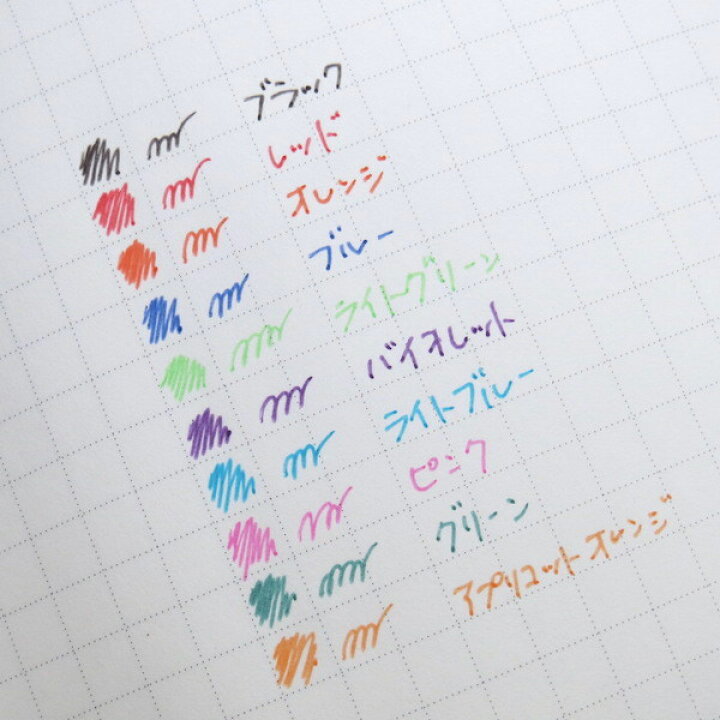 ブラック
レッド
オレンジ
ブルー
ライトグリーン
バイオレット
ライトブルー
ピンク
グリーン
アプリコットオレンジ